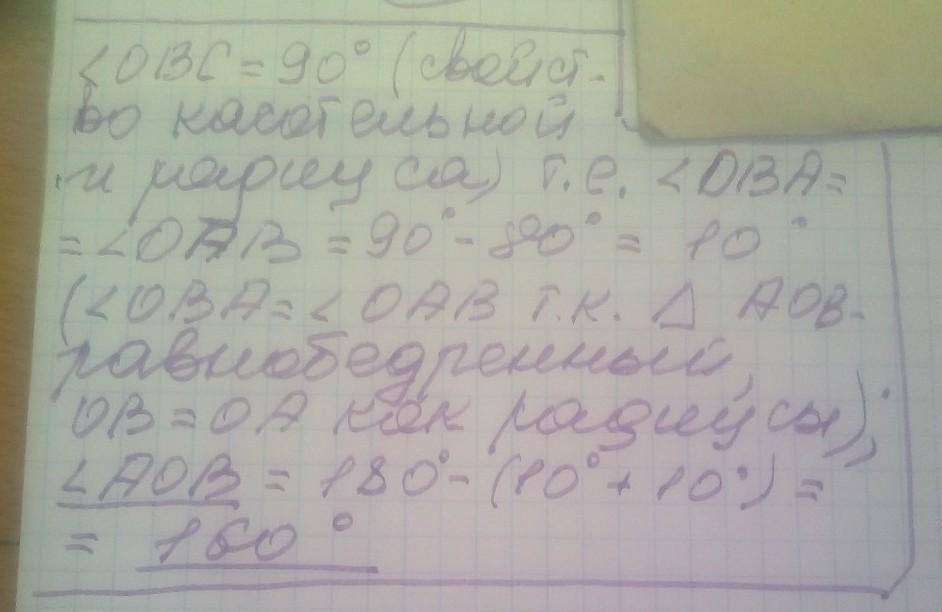 ∠OBC = 90° (свойст-
во касательной
и радиуса) т.е. ∠OBA =
= ∠OAB = 90° - 80° = 10°
(∠OBA = ∠OAB т.к. △ AOB-
равнобедренный,
OB = OA как радиусы),
∠AOB = 180° - (10° + 10°) =
= 160°